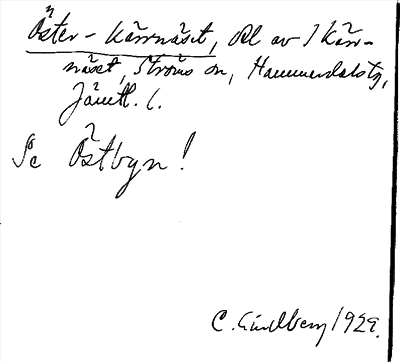 Öster-Kärrnäset, del av Kärr-
näset, Ströms sn, Hammerdals tg,
Jämtl. l.
Se Östbyn!
C. Lindberg 1929.